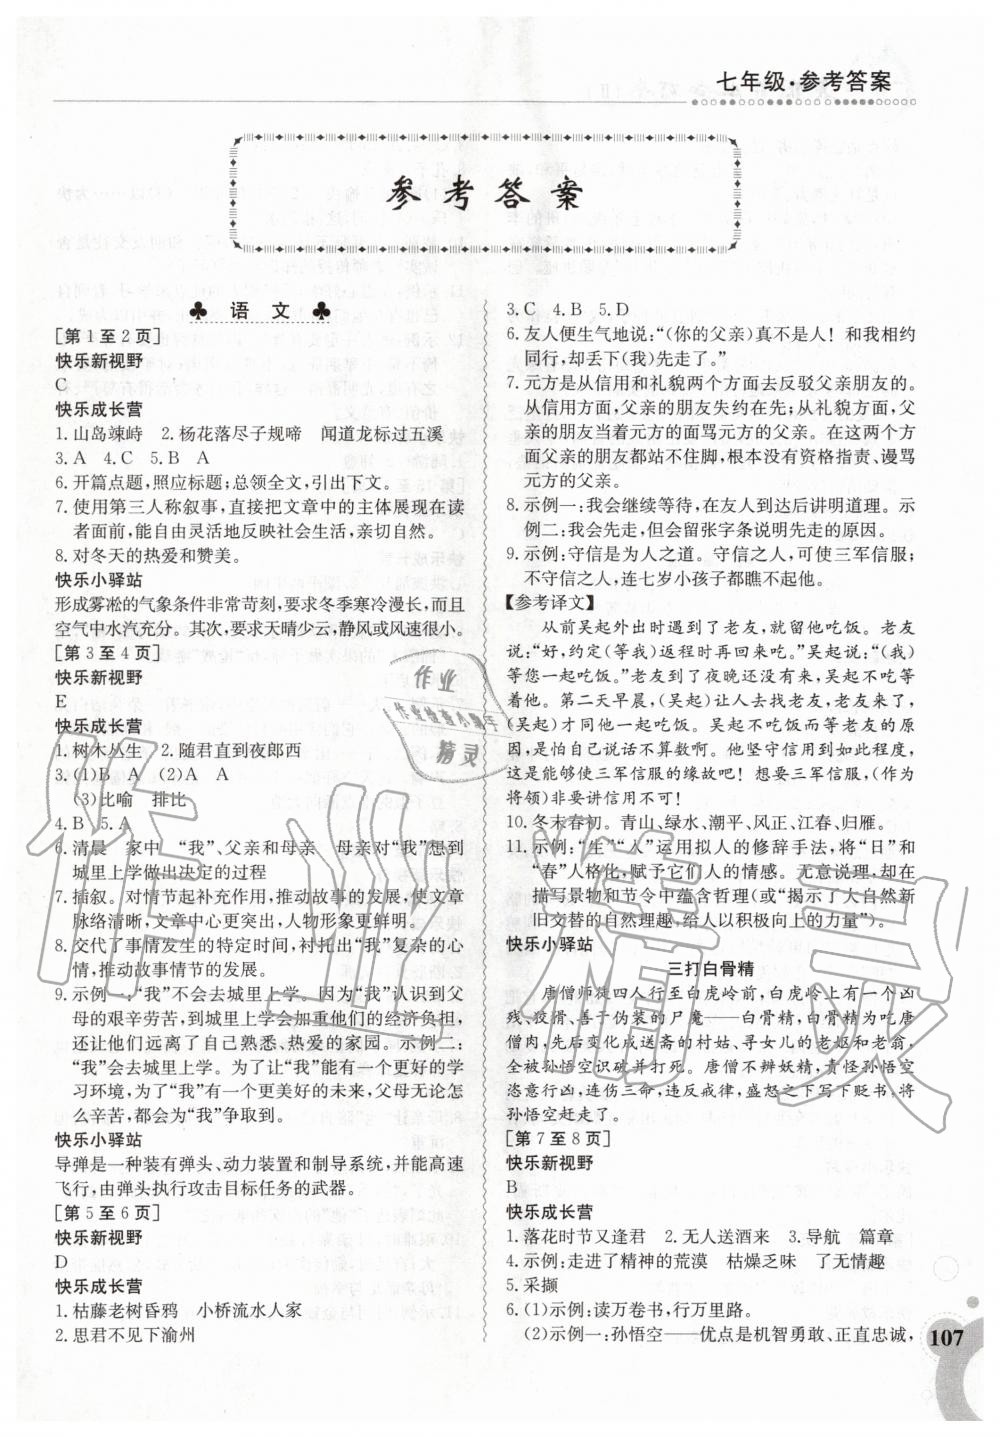 七年级·参考答案
参考答案
语 文
[第1至2页]
快乐新视野
C
快乐成长营
1.山岛竦峙　2.杨花落尽子规啼　闻道龙标过五溪
3.A　4.C　5.B　A
6.开篇点题,照应标题;总领全文,引出下文。
7.使用第三人称叙事,直接把文章中的主体展现在读
者面前,能自由灵活地反映社会生活,亲切自然。
8.对冬天的热爱和赞美。
快乐小驿站
形成雾凇的气象条件非常苛刻,要求冬季寒冷漫长,而且
空气中水汽充分。其次,要求天晴少云,静风或风速很小。
[第3至4页]
快乐新视野
E
快乐成长营
1.树木丛生　2.随君直到夜郎西
3.(1)B　A　(2)A　A
(3)比喻　排比
4.B　5.A
6.清晨　家中　“我”、父亲和母亲　母亲对“我”想到
城里上学做出决定的过程
7.插叙。对情节起补充作用,推动故事的发展,使文章
脉络清晰,文章中心更突出,人物形象更鲜明。
8.交代了事情发生的特定时间,衬托出“我”复杂的心
情,推动故事情节的发展。
9.示例一:“我”不会去城里上学。因为“我”认识到父
母的艰辛劳苦,到城里上学会加重他们的经济负担,
还让他们远离了自己熟悉、热爱的家园。示例二:
“我”会去城里上学。为了让“我”能有一个更好的学
习环境,为了“我”有一个更美好的未来,父母无论怎
么辛苦,都会为“我”争取到。
快乐小驿站
导弹是一种装有弹头、动力装置和制导系统,并能高速
飞行,由弹头执行攻击目标任务的武器。
[第5至6页]
快乐新视野
D
快乐成长营
1.枯藤老树昏鸦　小桥流水人家
2.思君不见下渝州
3.C　4.B　5.D
6.友人便生气地说:“(你的父亲)真不是人!和我相约
同行,却丢下(我)先走了。”
7.元方是从信用和礼貌两个方面去反驳父亲朋友的。
从信用方面,父亲的朋友失约在先;从礼貌方面,父
亲的朋友当着元方的面骂元方的父亲。在这两个方
面父亲的朋友都站不住脚,根本没有资格指责、谩骂
元方的父亲。
8.示例一:我会继续等待,在友人到达后讲明道理。示
例二:我会先走,但会留张字条说明先走的原因。
9.示例:守信是为人之道。守信之人,可使三军信服;
不守信之人,连七岁小孩子都瞧不起他。
【参考译文】
从前吴起外出时遇到了老友,就留他吃饭。老友
说:“好,约定(等我)返程时再回来吃。”吴起说:“(我)
等您一起吃饭。”老友到了夜晚还没有来,吴起不吃等
着他。第二天早晨,(吴起)让人去找老友,老友来了,
(吴起)才同他一起吃饭。吴起不吃饭而等老友的原
因,是怕自己说话不算数啊。他坚守信用到如此程度,
这是能够使三军信服的缘故吧!想要三军信服,(作为
将领)非要讲信用不可!
10.冬末春初。青山、绿水、潮平、风正、江春、归雁。
11.示例:“生”“入”运用拟人的修辞手法,将“日”和
“春”人格化,赋予它们人的情态。无意说理,却在
描写景物和节令中蕴含哲理(或“揭示了大自然新
旧交替的自然理趣,给人以积极向上的力量”)。
快乐小驿站
三打白骨精
唐僧师徒四人行至白虎岭前,白虎岭上有一个凶
残、狡猾、善于伪装的尸魔——白骨精,白骨精为吃唐
僧肉,先后变化成送斋的村姑、寻女儿的老妪和老翁,
全被孙悟空识破并打死。唐僧不辨妖精,责怪孙悟空
恣意行凶,连伤三命,违反戒律,盛怒之下写下贬书,将
孙悟空赶走了。
[第7至8页]
快乐新视野
B
快乐成长营
1.落花时节又逢君　2.无人送酒来　3.导航　篇章
4.示例:走进了精神的荒漠　枯燥乏味　了无情趣
5.采撷
6.(1)示例:读万卷书,行万里路。
(2)示例一:孙悟空——优点是机智勇敢、正直忠诚,
107
作业
作业检查小帮手
精灵
作业精灵